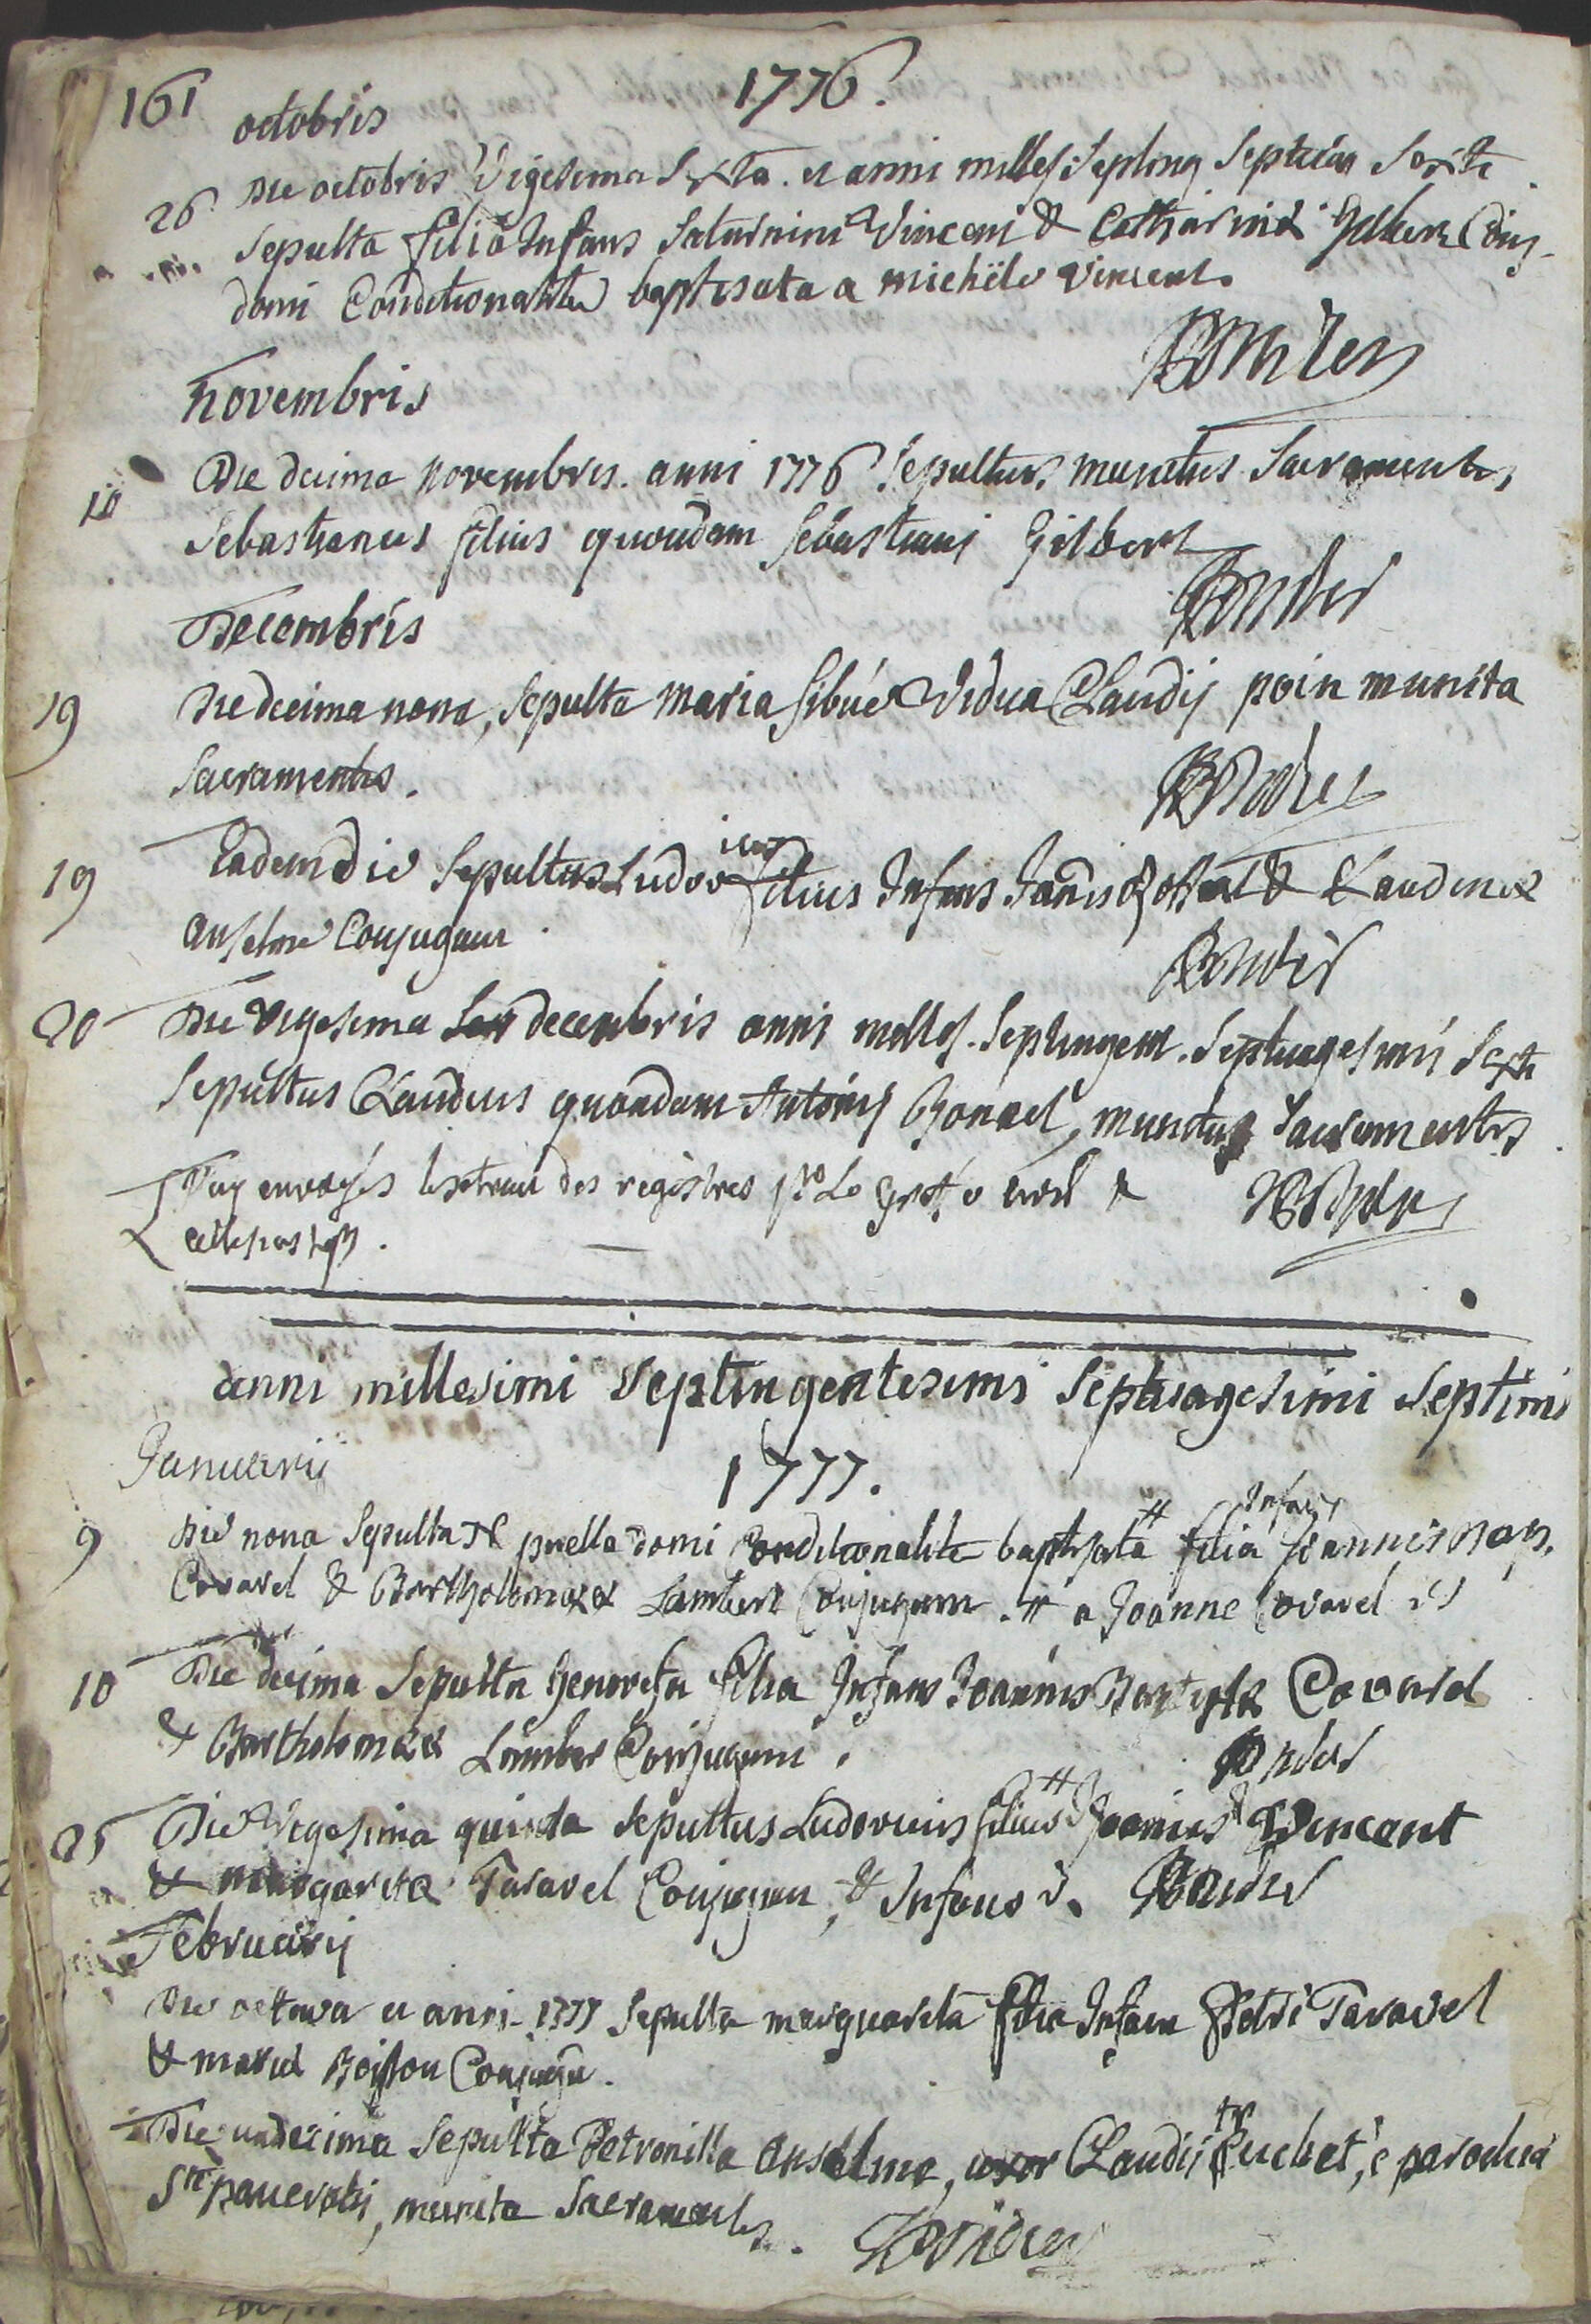 161
1776.
octobris
26 Die octobris Vigesima Sexta. et anni milles. Septing Septua Sexti
Sepulta filia Infans Saturnini Vincent & Catharinæ Gilbert Conj.
domi Conditionaliter baptisata a michële Vincent.
novembris
10 Die decima novembris. anni 1776 Sepultus, munitus Sacramentis,
Sebastianus filius quondam Sebastiani Gilbert
Decembris
19 Die decima nona, Sepulta Maria Sibué Vidua Claudij poin munita
Sacramentis.
19 Eadem die Sepultus Ludovicus filius Infans Joannis & Claudinæ
anselme Conjugum.
20 Die vigesima decembris anni milles. Septingent. Septuagesimi Sexti
Sepultus Claudius quondam Antonij Bonnel, munitus Sacramentis
J'ay envoyés des registres pro Le &
anni millesimi Septingentesimi Septuagesimi Septimi
Januarij
1777.
9 Die nona Sepulta puella domi Conditionaliter baptisata # filia Infans Joannis Bap.
Covarel & Bartholomææ Lambert Conjugum. # a Joanne Covarel
10 Die decima Sepulta Genovefa filia Infans Joannis Baptistæ Covarel
& Bartholomææ Lambert Conjugum.
25 Die Vigesima quinta Sepultus Ludovicus filius # Joannis Vincent
& margaritæ Taravel Conjugum, # Infans
Februarij
Die octava et anni 1777 Sepulta marguarita filia Infans Petri Taravel
& mariæ Boisson Conjugu.
Die undecima Sepulta Petronilla anselme, uxor Claudij truchet, è parochia
Sti pancratij, munita Sacramentis.